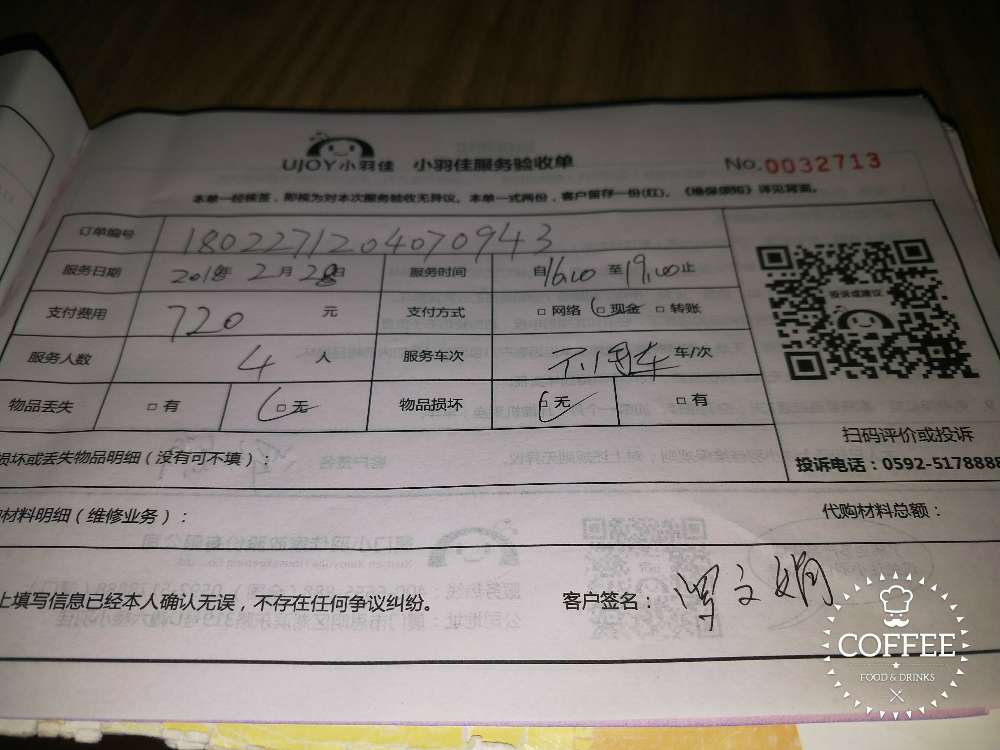 UJOY小羽佳 小羽佳服务验收单 No.0032713
本单一经核签，即视为对本次服务验收无异议。本单一式两份，客户留存一份(红)。《维保须知》详见背面。
订单编号 180227120407 0943
服务日期 2018年2月28日 服务时间 自16:00至19:00止
支付费用 720 元 支付方式 □网络 □现金 □转账
服务人数 4 人 服务车次 不用车 车/次
物品丢失 □有 □无 物品损坏 □无 □有
投诉或建议
扫码评价或投诉
投诉电话：0592-5178888
损坏或丢失物品明细（没有可不填）：
材料明细（维修业务）： 代购材料总额：
上填写信息已经本人确认无误，不存在任何争议纠纷。 客户签名：
COFFEE
FOOD & DRINKS